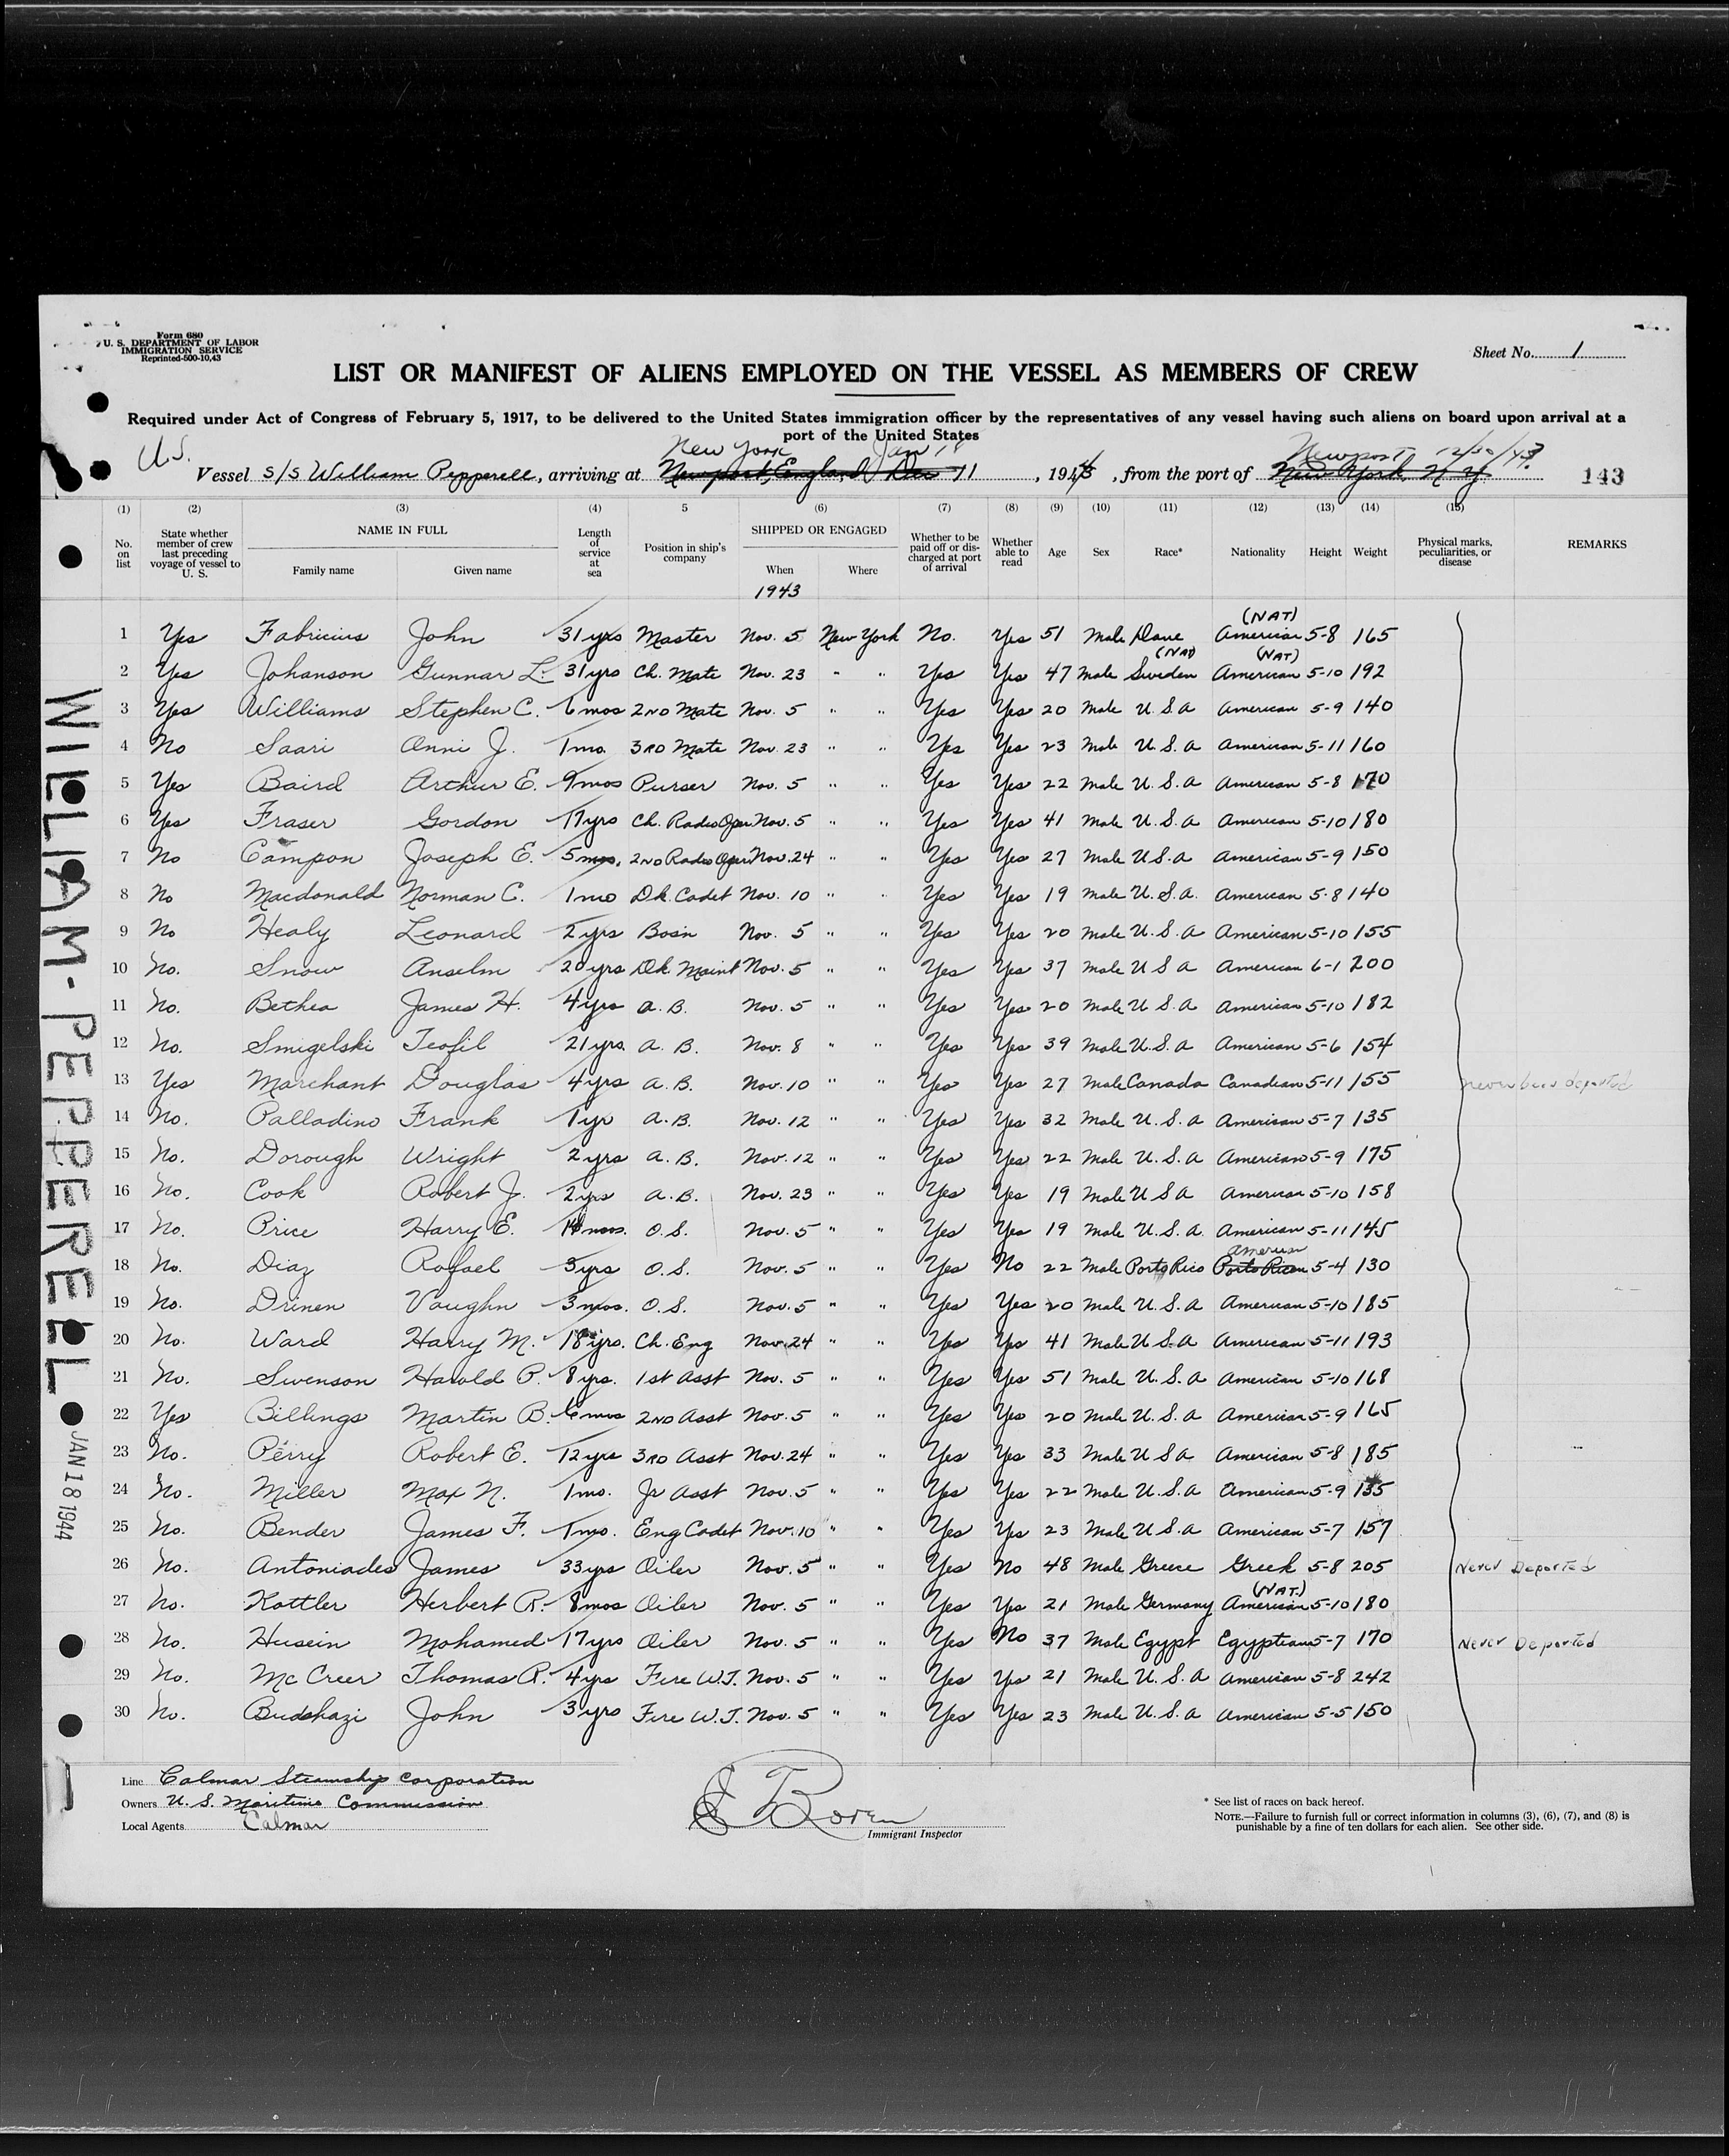 Form 680
U. S. DEPARTMENT OF LABOR
IMMIGRATION SERVICE
Reprinted-500-10,43
Sheet No. 1
LIST OR MANIFEST OF ALIENS EMPLOYED ON THE VESSEL AS MEMBERS OF CREW
Required under Act of Congress of February 5, 1917, to be delivered to the United States immigration officer by the representatives of any vessel having such aliens on board upon arrival at a
port of the United States
U.S. New York Jan 18 Newport 12/30/43
Vessel S/S William Pepperell, arriving at Newport, England Dec 11, 194, from the port of New York, N.Y. 143
(1) (2) (3) (4) 5 (6) (7) (8) (9) (10) (11) (12) (13) (14) (15)
No. on list
State whether member of crew last preceding voyage of vessel to U. S.
NAME IN FULL
Family name Given name
Length of service at sea
Position in ship's company
SHIPPED OR ENGAGED
When Where
1943
Whether to be paid off or discharged at port of arrival
Whether able to read
Age Sex Race* Nationality Height Weight
Physical marks, peculiarities, or disease
REMARKS
1 Yes Fabricius John 31 yrs Master Nov. 5 New York No. Yes 51 Male Dane (NAT) American 5-8 165
2 Yes Johanson Gunnar L. 31 yrs Ch. Mate Nov. 23 " " Yes Yes 47 Male (NAT) Sweden (NAT) American 5-10 192
3 Yes Williams Stephen C. 6 mos 2ND Mate Nov. 5 " " Yes Yes 20 Male U.S.A American 5-9 140
4 No Saari Onni J. 1 mo. 3RD Mate Nov. 23 " " Yes Yes 23 Male U.S.A American 5-11 160
5 Yes Baird Arthur E. 9 mos Purser Nov. 5 " " Yes Yes 22 Male U.S.A American 5-8 170
6 Yes Fraser Gordon 17 yrs Ch. Radio Oper Nov. 5 " " Yes Yes 41 Male U.S.A American 5-10 180
7 No Campon Joseph E. 5 mos. 2ND Radio Oper Nov. 24 " " Yes Yes 27 Male U.S.A American 5-9 150
8 No Macdonald Norman C. 1 mo Dk. Cadet Nov. 10 " " Yes Yes 19 Male U.S.A. American 5-8 140
9 No Healy Leonard 2 yrs Bosn Nov. 5 " " Yes Yes 20 Male U.S.A American 5-10 155
10 No. Snow Anselm 20 yrs Dk. Maint Nov. 5 " " Yes Yes 37 Male U S A American 6-1 200
11 No. Bethea James H. 4 yrs A.B. Nov. 5 " " Yes Yes 20 Male U.S.A American 5-10 182
12 No. Smigelski Teofil 21 yrs A.B. Nov. 8 " " Yes Yes 39 Male U.S.A American 5-6 154
13 Yes Marchant Douglas 4 yrs A.B. Nov. 10 " " Yes Yes 27 Male Canada Canadian 5-11 155 never been deported
14 No. Palladino Frank 1 yr A.B. Nov. 12 " " Yes Yes 32 Male U.S.A American 5-7 135
15 No. Dorough Wright 2 yrs A.B. Nov. 12 " " Yes Yes 22 Male U.S.A American 5-9 175
16 No. Cook Robert J. 2 yrs A.B. Nov. 23 " " Yes Yes 19 Male U S A American 5-10 158
17 No. Price Harry E. mos. O.S. Nov. 5 " " Yes Yes 19 Male U.S.A. American 5-11 145
18 No. Diaz Rafael 3 yrs O.S. Nov. 5 " " Yes No 22 Male Porto Rico American Porto Rican 5-4 130
19 No. Drinen Vaughn 3 mos. O.S. Nov. 5 " " Yes Yes 20 Male U.S.A American 5-10 185
20 No. Ward Harry M. 18 yrs. Ch. Eng Nov. 24 " " Yes Yes 41 Male U.S.A American 5-11 193
21 No. Swenson Harold P. 8 yrs. 1st Asst Nov. 5 " " Yes Yes 51 Male U.S.A American 5-10 168
22 Yes Billings Martin B. 6 mos 2ND Asst Nov. 5 " " Yes Yes 20 Male U.S.A American 5-9 165
23 No. Perry Robert E. 12 yrs 3RD Asst Nov. 24 " " Yes Yes 33 Male U S A American 5-8 185
24 No. Miller Max N. 1 mo. Jr Asst Nov. 5 " " Yes Yes 22 Male U.S.A American 5-9 135
25 No. Bender James F. 1 mo. Eng Cadet Nov. 10 " " Yes Yes 23 Male U.S.A American 5-7 157
26 No. Antoniades James 33 yrs Oiler Nov. 5 " " Yes No 48 Male Greece Greek 5-8 205 Never Deported
27 No. Kottler Herbert R. 8 mos Oiler Nov. 5 " " Yes Yes 21 Male Germany (NAT.) American 5-10 180
28 No. Husein Mohamed 17 yrs Oiler Nov. 5 " " Yes No 37 Male Egypt Egyptian 5-7 170 Never Deported
29 No. McCreer Thomas R. 4 yrs Fire W.T. Nov. 5 " " Yes Yes 21 Male U.S.A American 5-8 242
30 No. Budahazi John 3 yrs Fire W.T. Nov. 5 " " Yes Yes 23 Male U.S.A American 5-5 150
WILLIAM-PEPPERELL
JAN 18 1944
Line Calmar Steamship Corporation
Owners U.S. Maritime Commission
Local Agents Calmar
Boren
Immigrant Inspector
* See list of races on back hereof.
NOTE.—Failure to furnish full or correct information in columns (3), (6), (7), and (8) is
punishable by a fine of ten dollars for each alien. See other side.